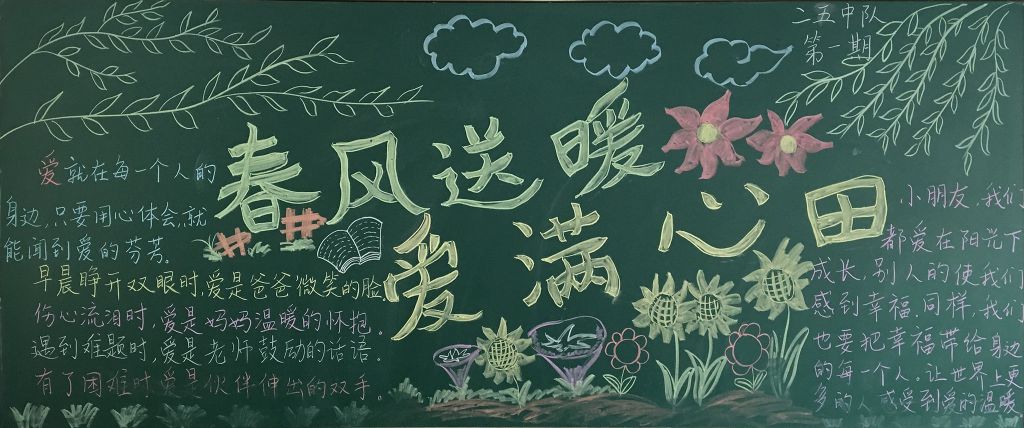 二五中队
第一期
春风送暖
爱满心田
爱就在每一个人的
身边,只要用心体会,就
能闻到爱的芬芳。
早晨睁开双眼时,爱是爸爸微笑的脸
伤心流泪时,爱是妈妈温暖的怀抱。
遇到难题时,爱是老师鼓励的话语。
有了困难时爱是伙伴伸出的双手。
小朋友,我们
都爱在阳光下
成长,别人的使我们
感到幸福.同样,我们
也要把幸福带给身边
的每一个人.让世界上更
多的人感受到爱的温暖